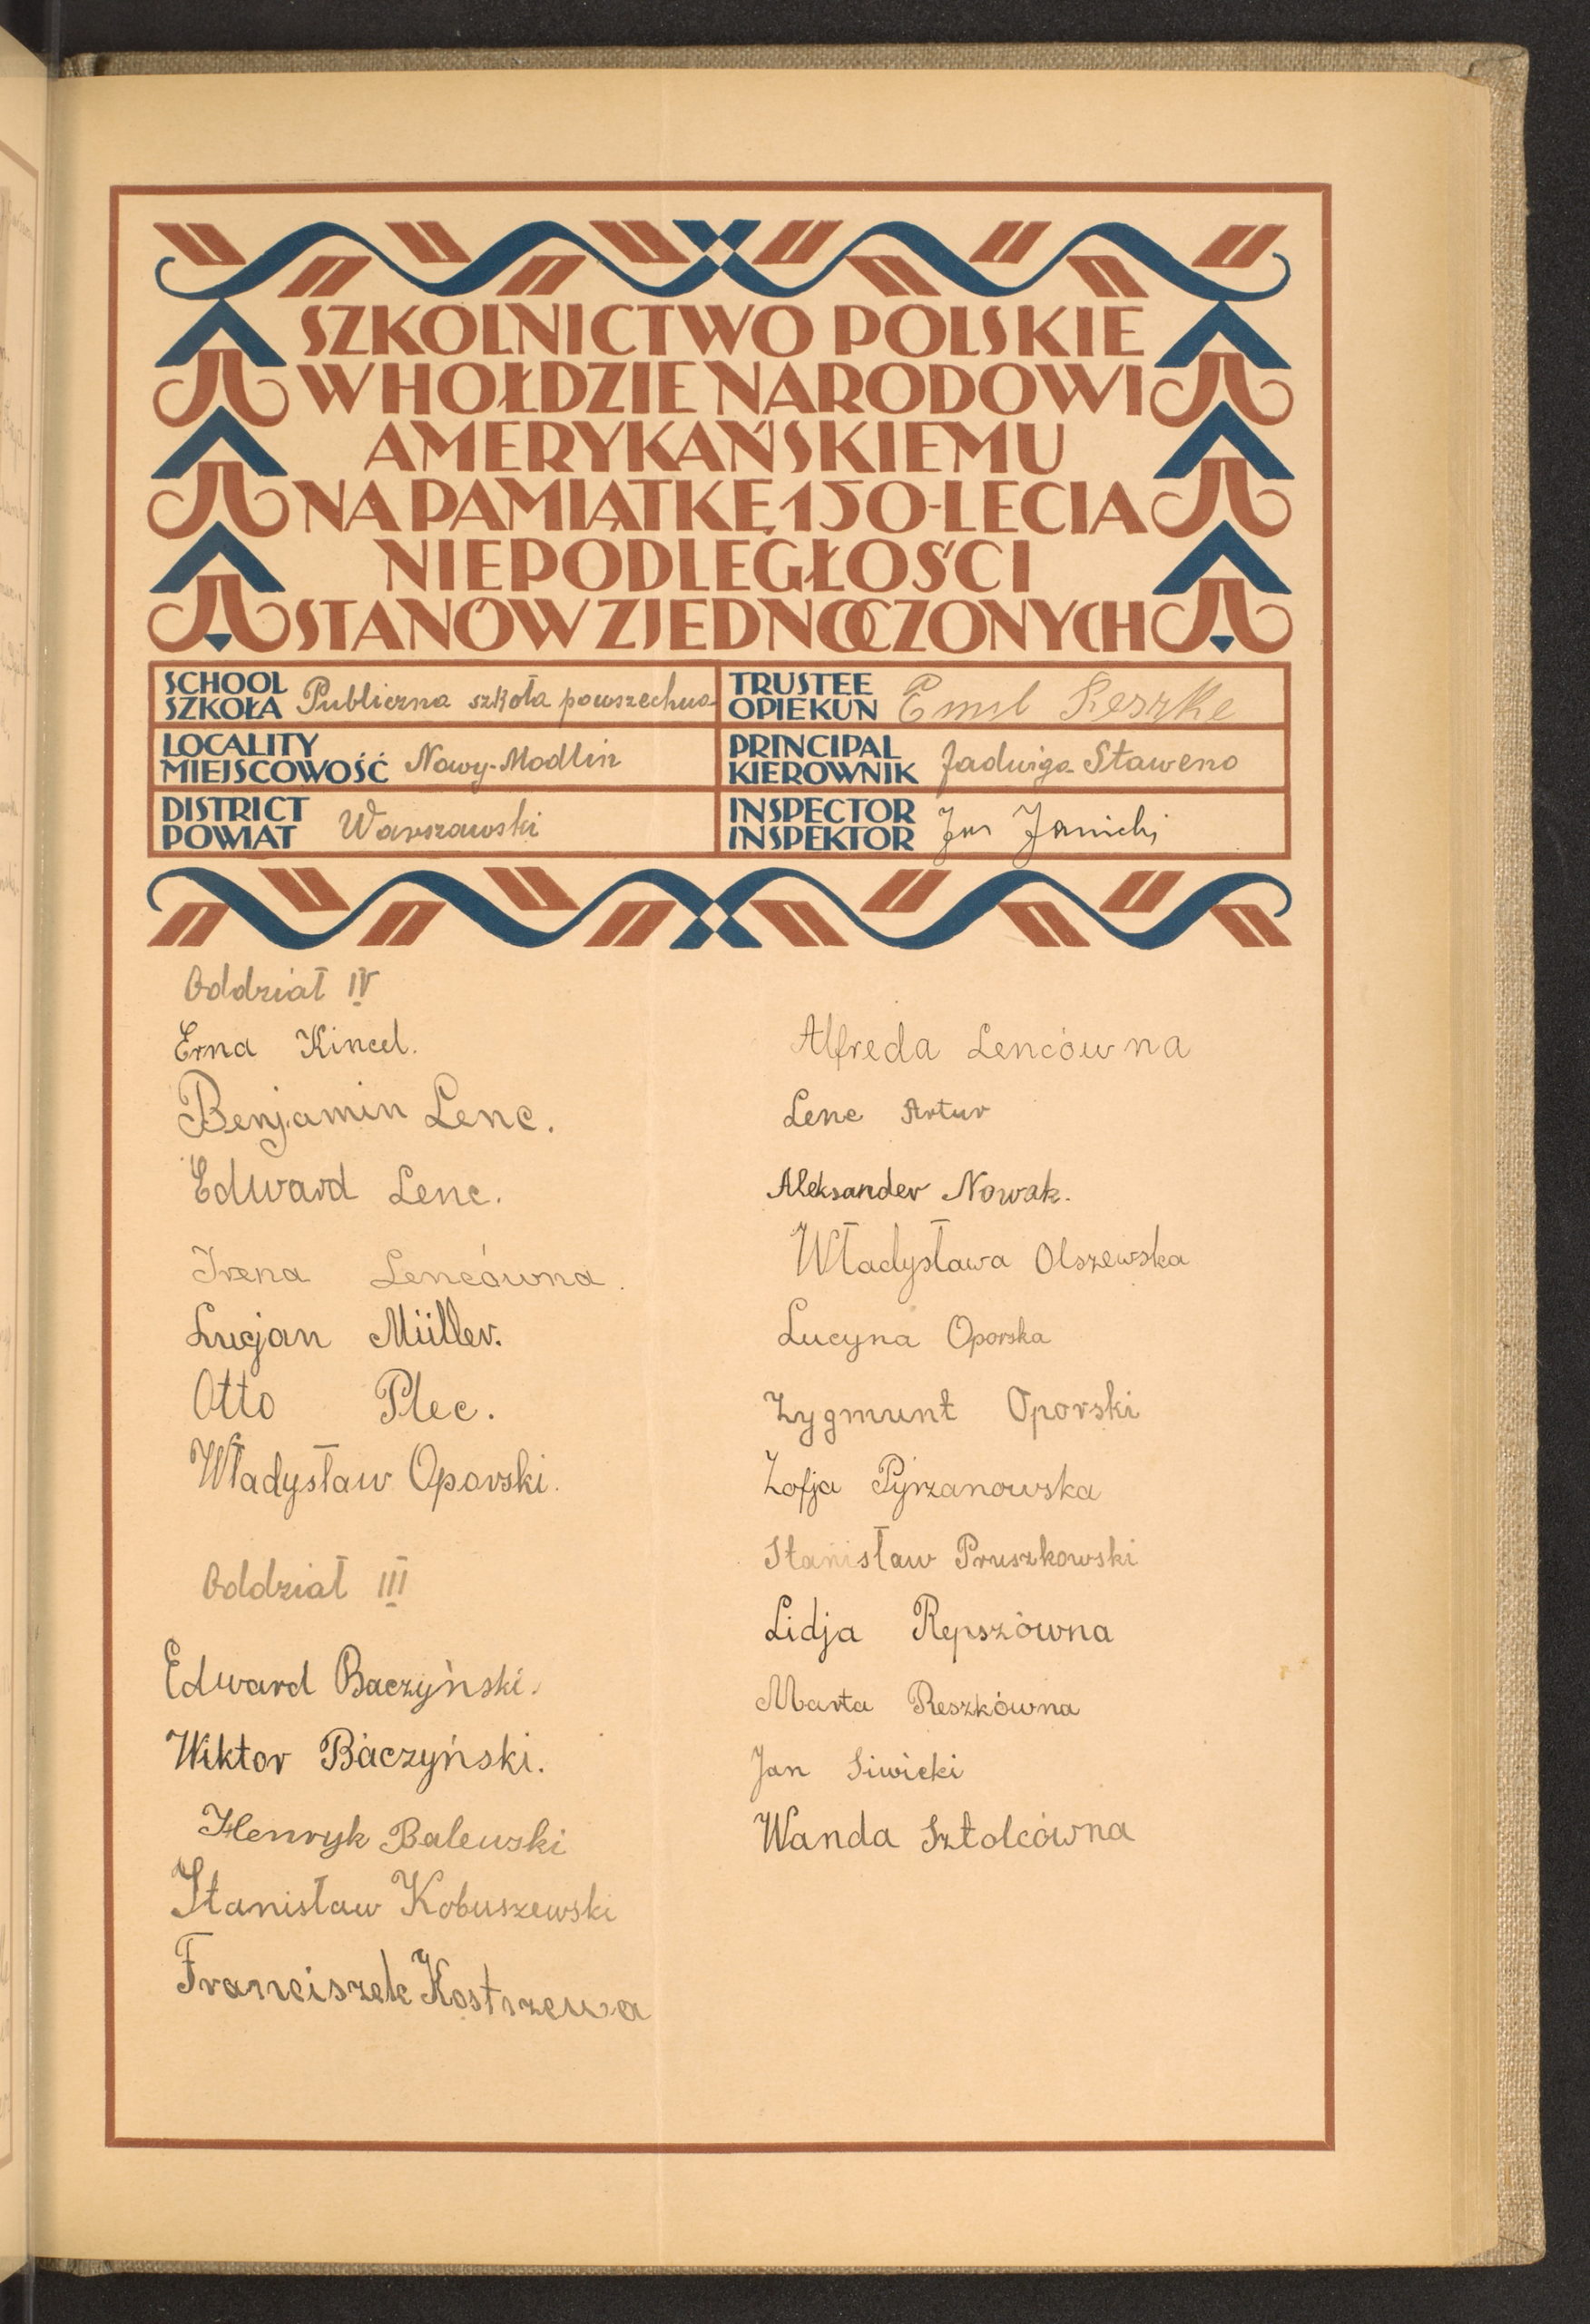 SZKOLNICTWO POLSKIE
W HOŁDZIE NARODOWI
AMERYKAŃSKIEMU
NA PAMIĄTKĘ 150-LECIA
NIEPODLEGŁOŚCI
STANÓW ZJEDNOCZONYCH
SCHOOL
SZKOŁA Publiczna szkoła powszechna
TRUSTEE
OPIEKUN Emil Reszke
LOCALITY
MIEJSCOWOŚĆ Nowy-Modlin
PRINCIPAL
KIEROWNIK Jadwiga Staweno
DISTRICT
POWIAT Warszawski
INSPECTOR
INSPEKTOR Jan Janicki
Oddział IV
Erna Kincel.
Benjamin Lenc.
Edward Lenc.
Irena Lencówna.
Lucjan Müller.
Otto Plec.
Władysław Oporski.
Oddział III
Edward Baczyński.
Wiktor Baczyński.
Henryk Balewski
Stanisław Kobuszewski
Franciszek Kostrzewa
Alfreda Lencówna
Lenc Artur
Aleksander Nowak.
Władysława Olszewska
Lucyna Oporska
Zygmunt Oporski
Zofja Pyrzanowska
Stanisław Pruszkowski
Lidja Repszówna
Marta Reszkówna
Jan Siwicki
Wanda Sztolcówna